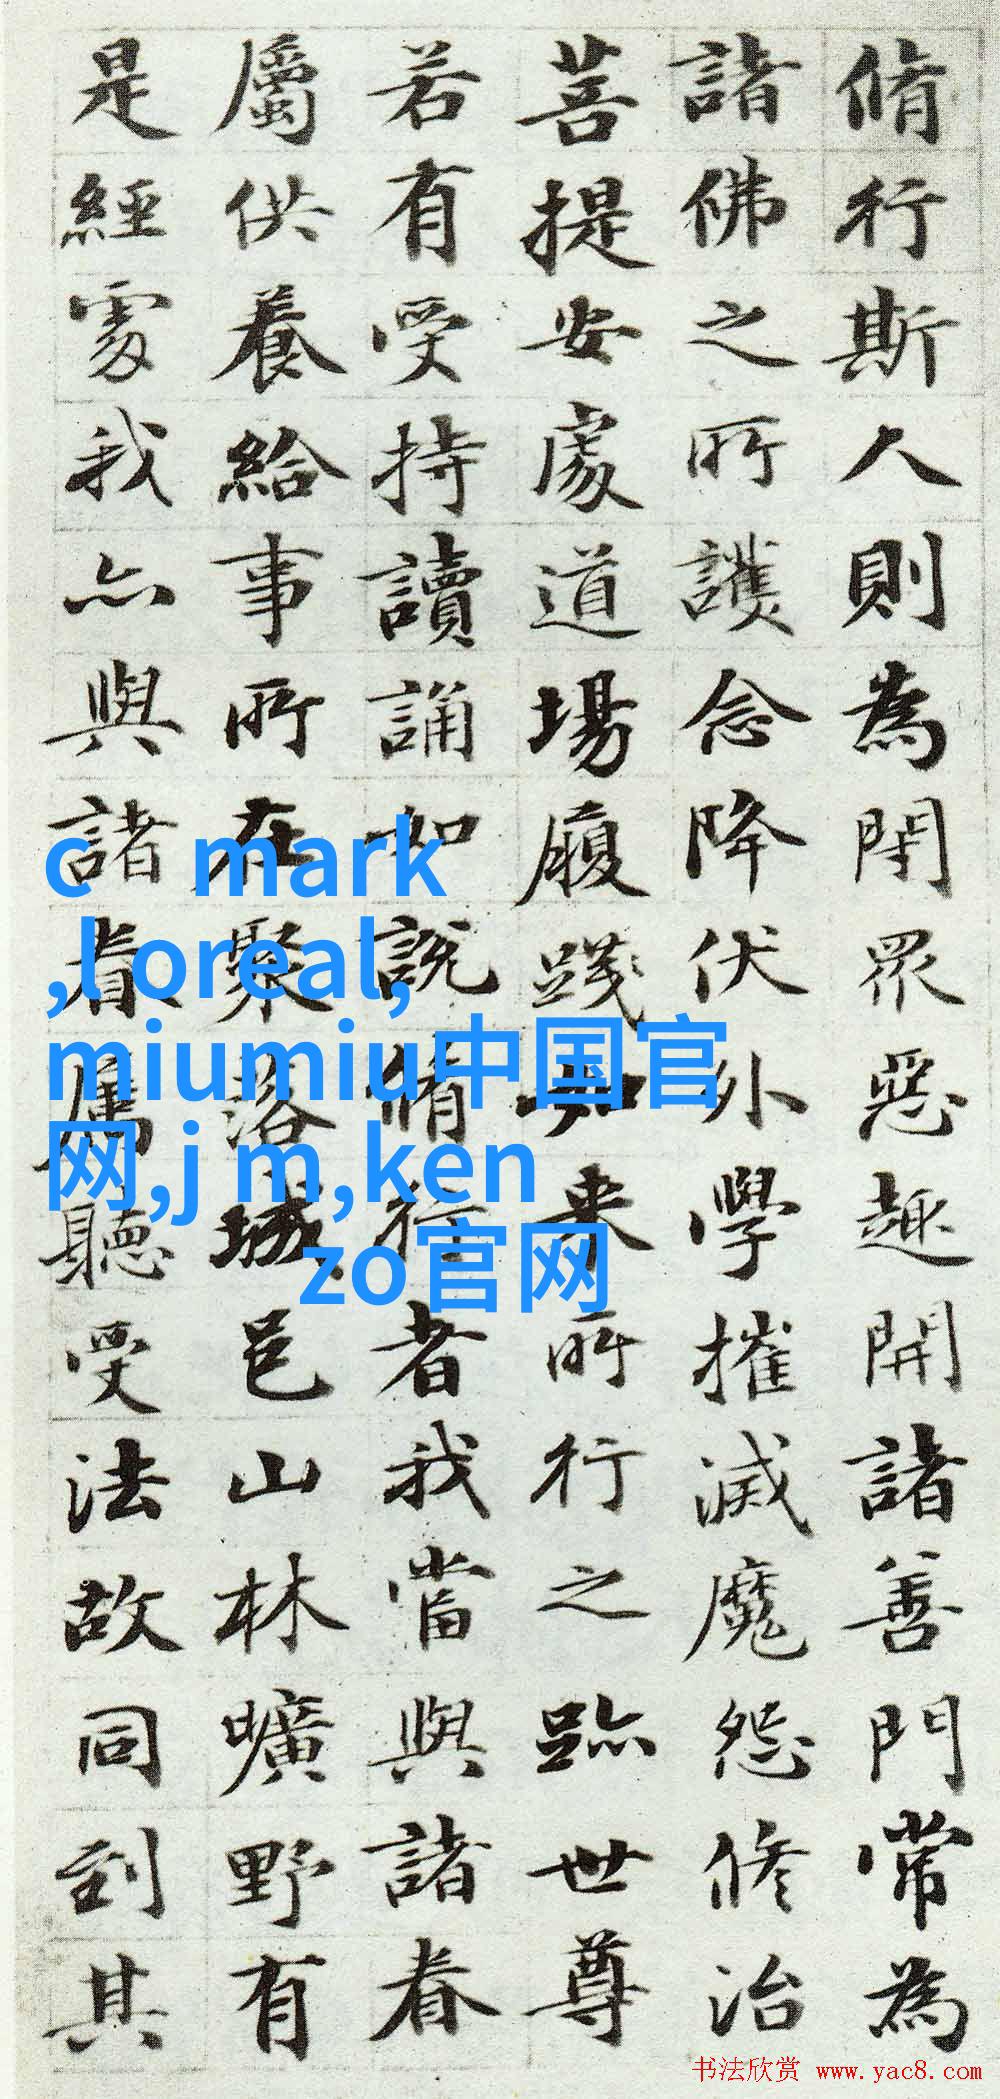 脩行斯人則為閇眾惡趣開諸善門常為
諸佛之所護念降伏外學摧滅魔怨修治
菩提安處道場履踐如来所行之跡世尊
若有受持讀誦如說脩行者我當與諸眷
屬供養給事所在聚落城邑山林曠野有
是經處我亦與諸眷屬聽受法故同到其
c mark
,loreal,
miumiu中国官
网,j m,ken
zo官网
书法欣赏 www.yac8.com